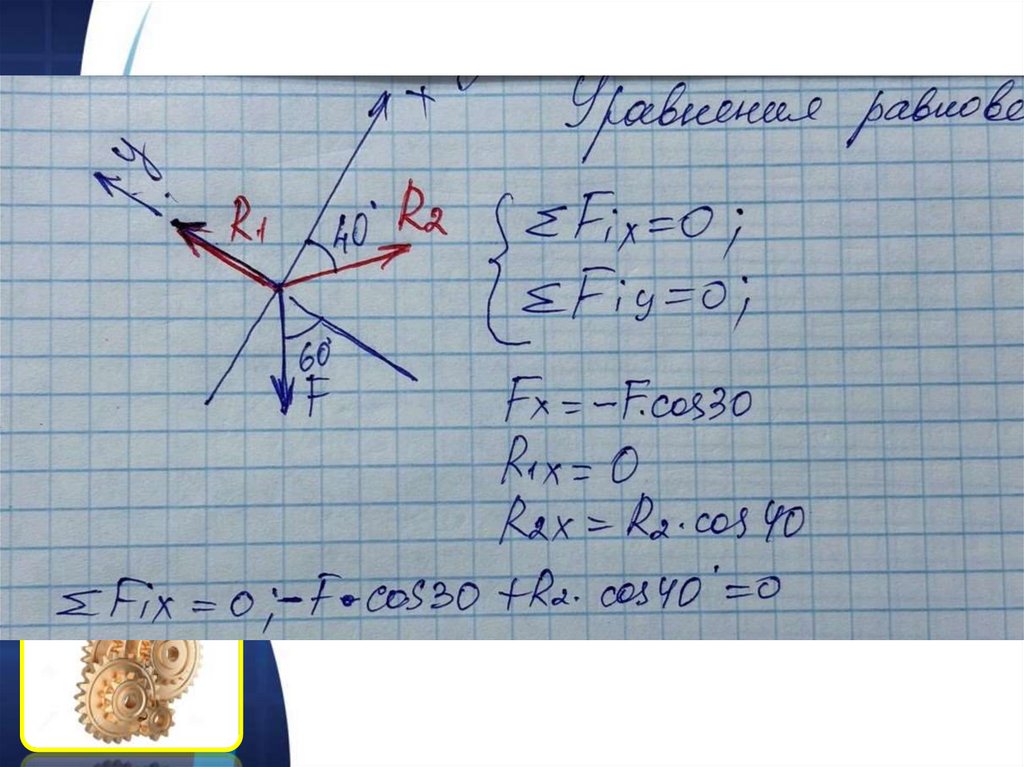 Уравнения равнове
x
y
R1
40°
R2
60°
F
ΣFix=0;
ΣFiy=0;
Fx=-F·cos30
R1x=0
R2x=R2·cos40
ΣFix=0; -F·cos30+R2·cos40°=0